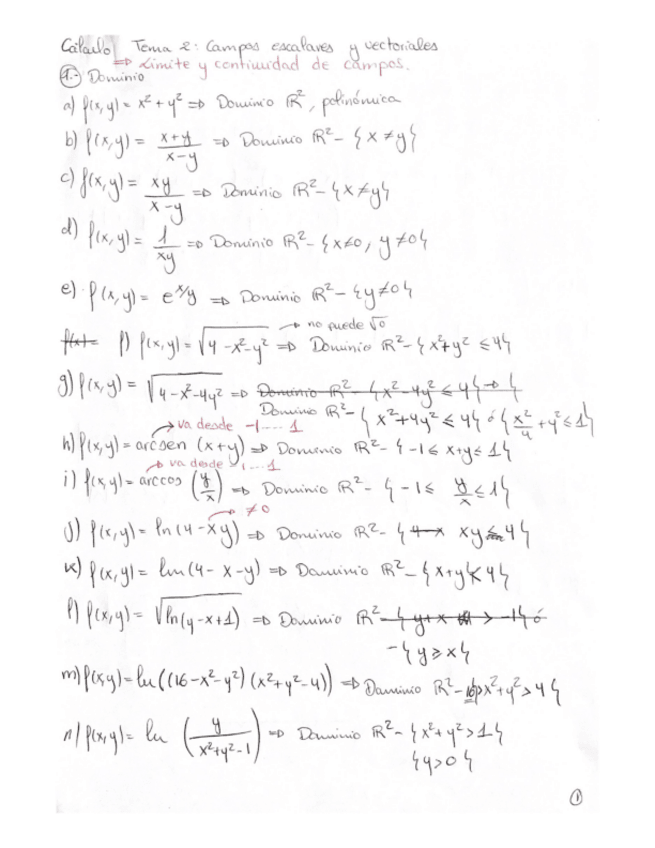 Cálculo Tema 2: Campos escalares y vectoriales
⇒ Límite y continuidad de campos.
1.- Dominio
a) f(x,y) = x² + y² ⇒ Dominio ℝ², polinómica
b) f(x,y) = (x+y)/(x-y) ⇒ Dominio ℝ² - {x ≠ y}
c) f(x,y) = xy/(x-y) ⇒ Dominio ℝ² - {x ≠ y}
d) f(x,y) = 1/(xy) ⇒ Dominio ℝ² - {x≠0, y≠0}
e) f(x,y) = e^(x/y) ⇒ Dominio ℝ² - {y≠0}
→ no puede √0
f(x)= f) f(x,y) = √(4-x²-y²) ⇒ Dominio ℝ² - {x²+y² ≤ 4}
g) f(x,y) = √(4-x²-4y²) ⇒ Dominio ℝ² - {x²-4y² ≤ 4} → {
Dominio ℝ² - {x²+4y² ≤ 4} ó {x²/4 + y² ≤ 1}
→ va desde -1.... 1
h) f(x,y) = arcsen (x+y) ⇒ Dominio ℝ² - {-1 ≤ x+y ≤ 1}
→ va desde -1....1
i) f(x,y) = arccos (y/x) ⇒ Dominio ℝ² - {-1 ≤ y/x ≤ 1}
→ ≠0
j) f(x,y) = ln(4-xy) ⇒ Dominio ℝ² - {4-x xy ≤ 4}
k) f(x,y) = ln(4-x-y) ⇒ Dominio ℝ² - {x+y < 4}
l) f(x,y) = √(ln(y-x+1)) ⇒ Dominio ℝ² - {y+x > -1} ó
- {y ≥ x}
m) f(x,y) = ln((16-x²-y²)(x²+y²-4)) ⇒ Dominio ℝ² - 16>x²+y²>4}
n) f(x,y) = ln (y/(x²+y²-1)) ⇒ Dominio ℝ² - {x²+y²>1}
{y>0}
1